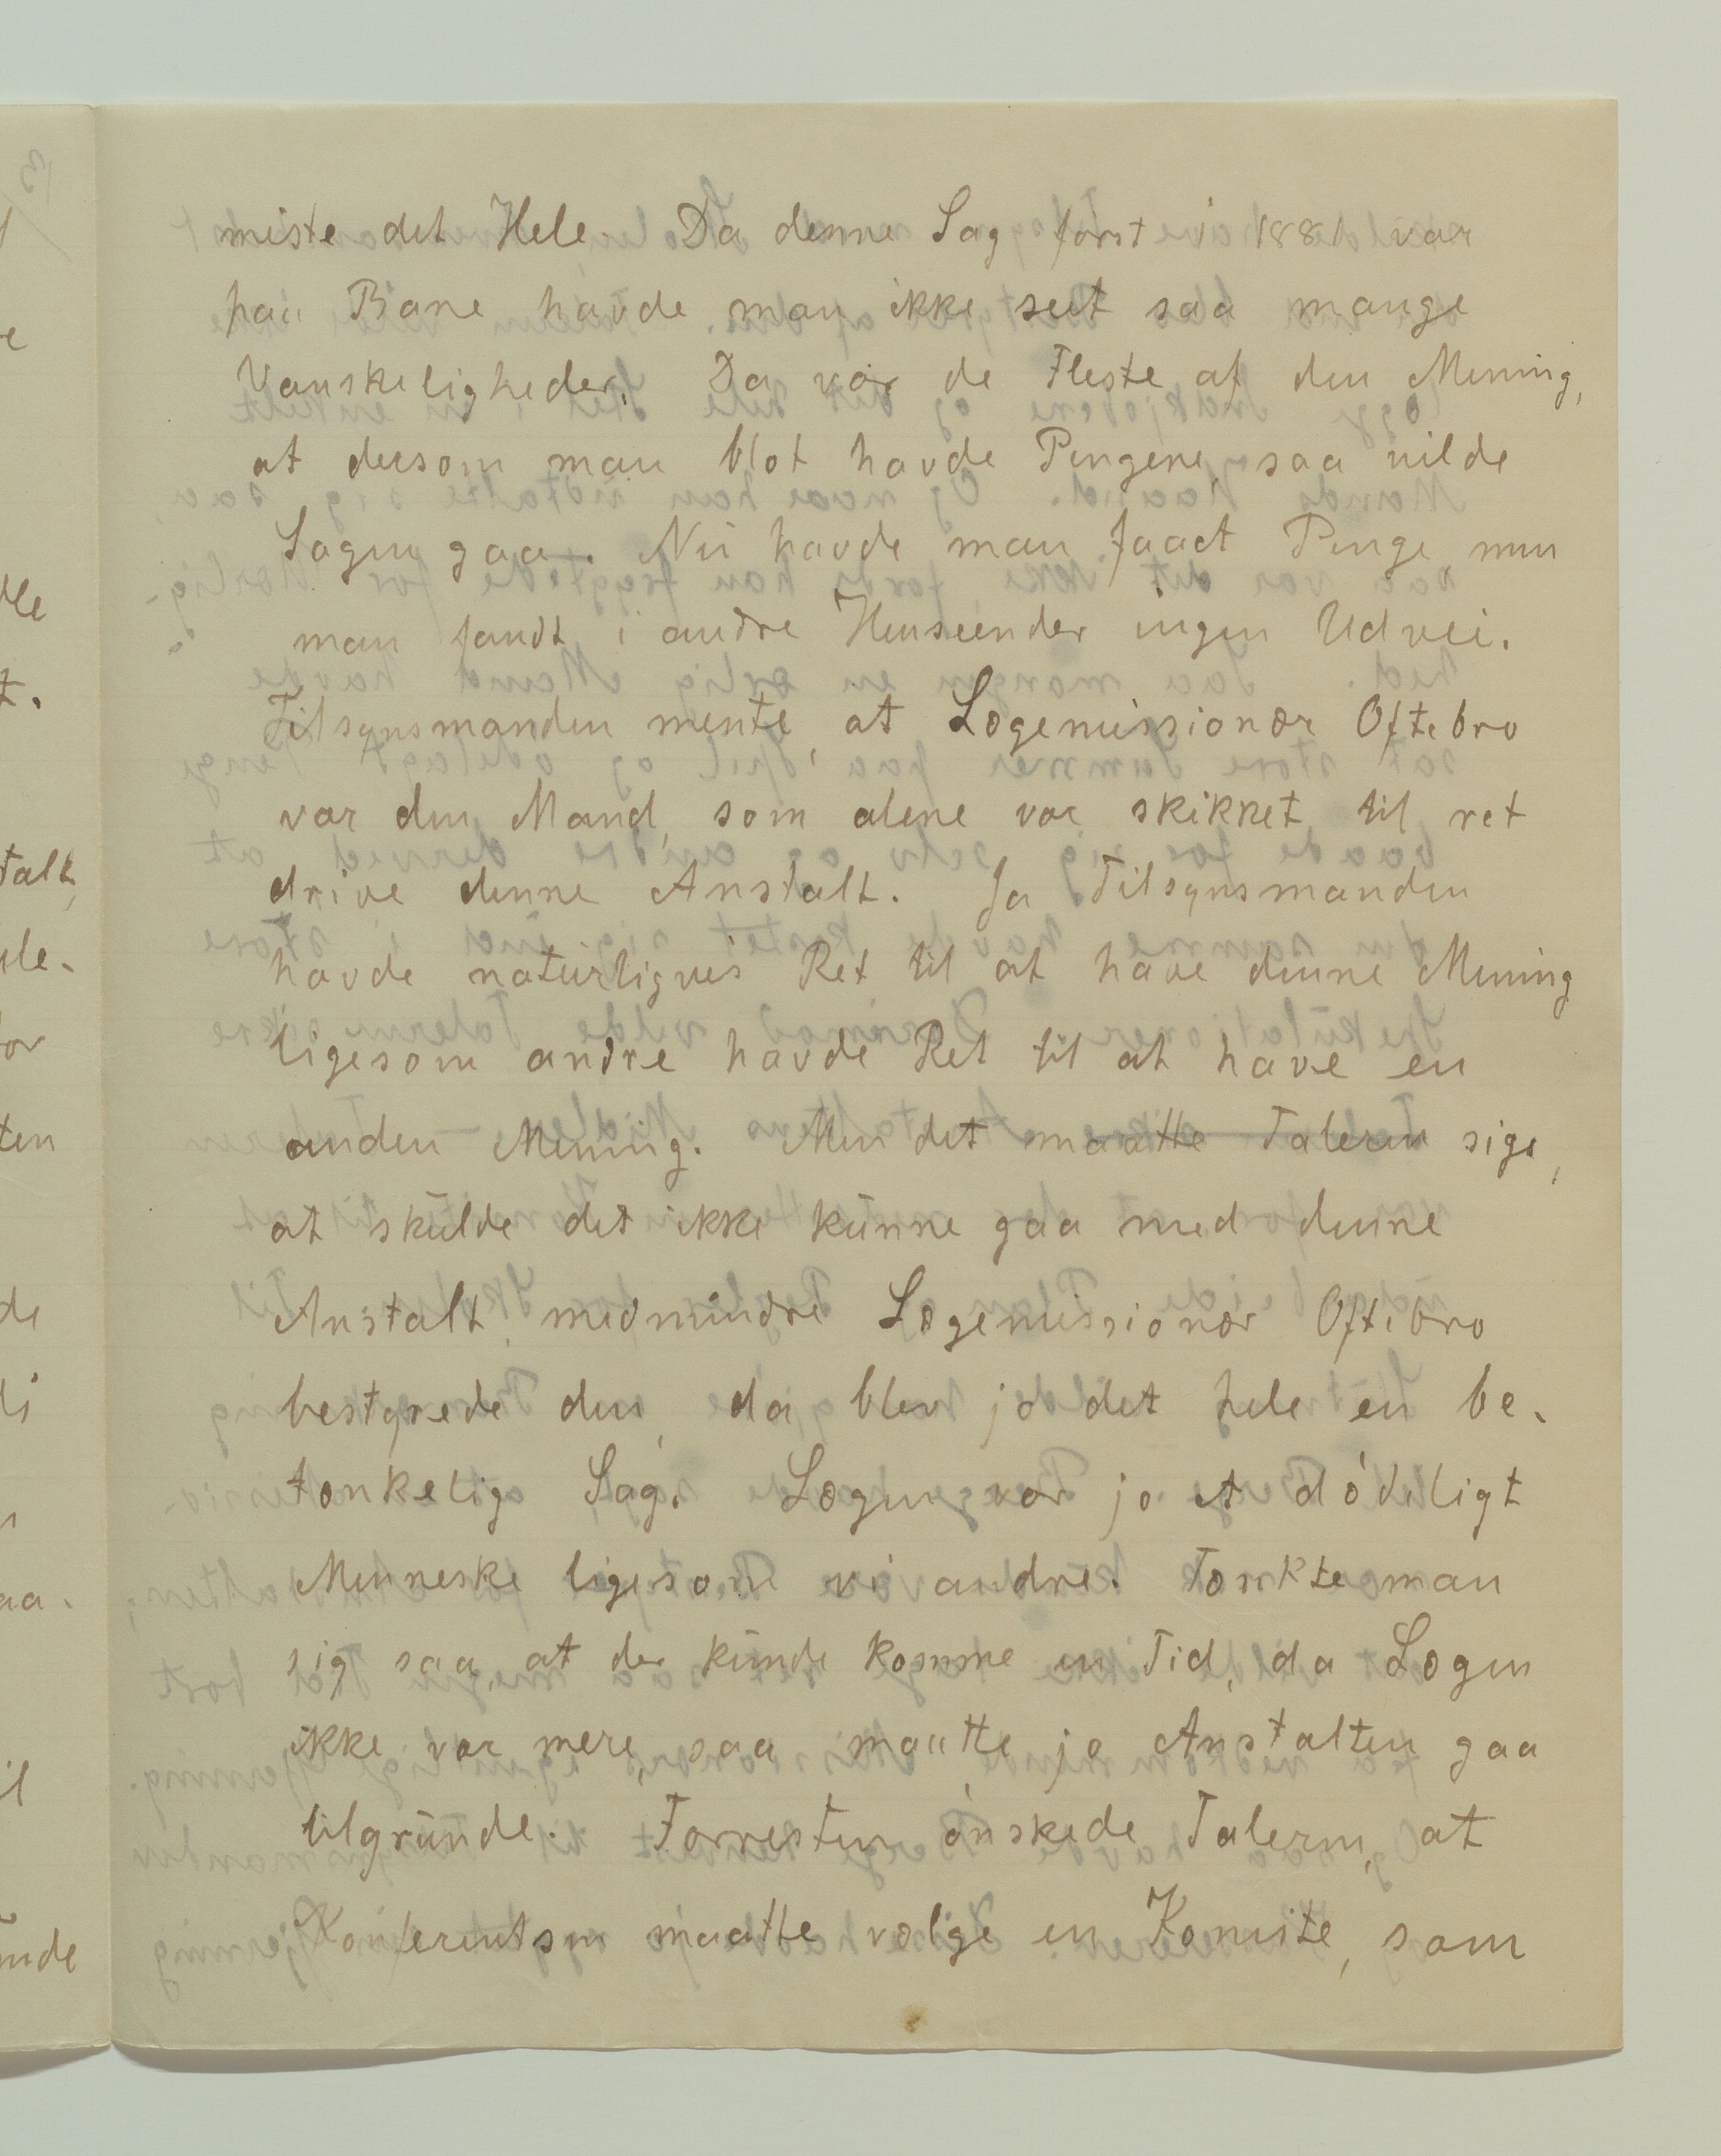 miste det Hele. Da denne Sag først i 1881 var
paa Bane havde man ikke seet saa mange
Vanskeligheder. Da var de Fleste af den Mening,
at dersom man blot havde Pengene, saa vilde
Sagen gaa. Nu havde man faaet Penge, men
man fandt i andre Henseender ingen Udvei.
Tilsynsmanden mente, at Lægemissionær Oftebro
var den Mand, som alene var skikket til ret
drive denne Anstalt. Ja Tilsynsmanden
havde naturligvis Ret til at have denne Mening
ligesom andre havde Ret til at have en
anden Mening. Men det maatte Taleren sige,
at skulde det ikke kunne gaa med denne
Anstalt, medmindre Lægemissionær Oftebro
bestyrede den, da blev jo det hele en be-
tænkelig Sag. Lægen var jo et dødeligt
Menneske ligesom vi andre. Tænkte man
sig saa, at der kunde komme en Tid, da Lægen
ikke var mere, saa maatte jo Anstalten gaa
tilgrunde. Forresten ønskede Taleren, at
Konferentsen maatte vælge en Komite, som